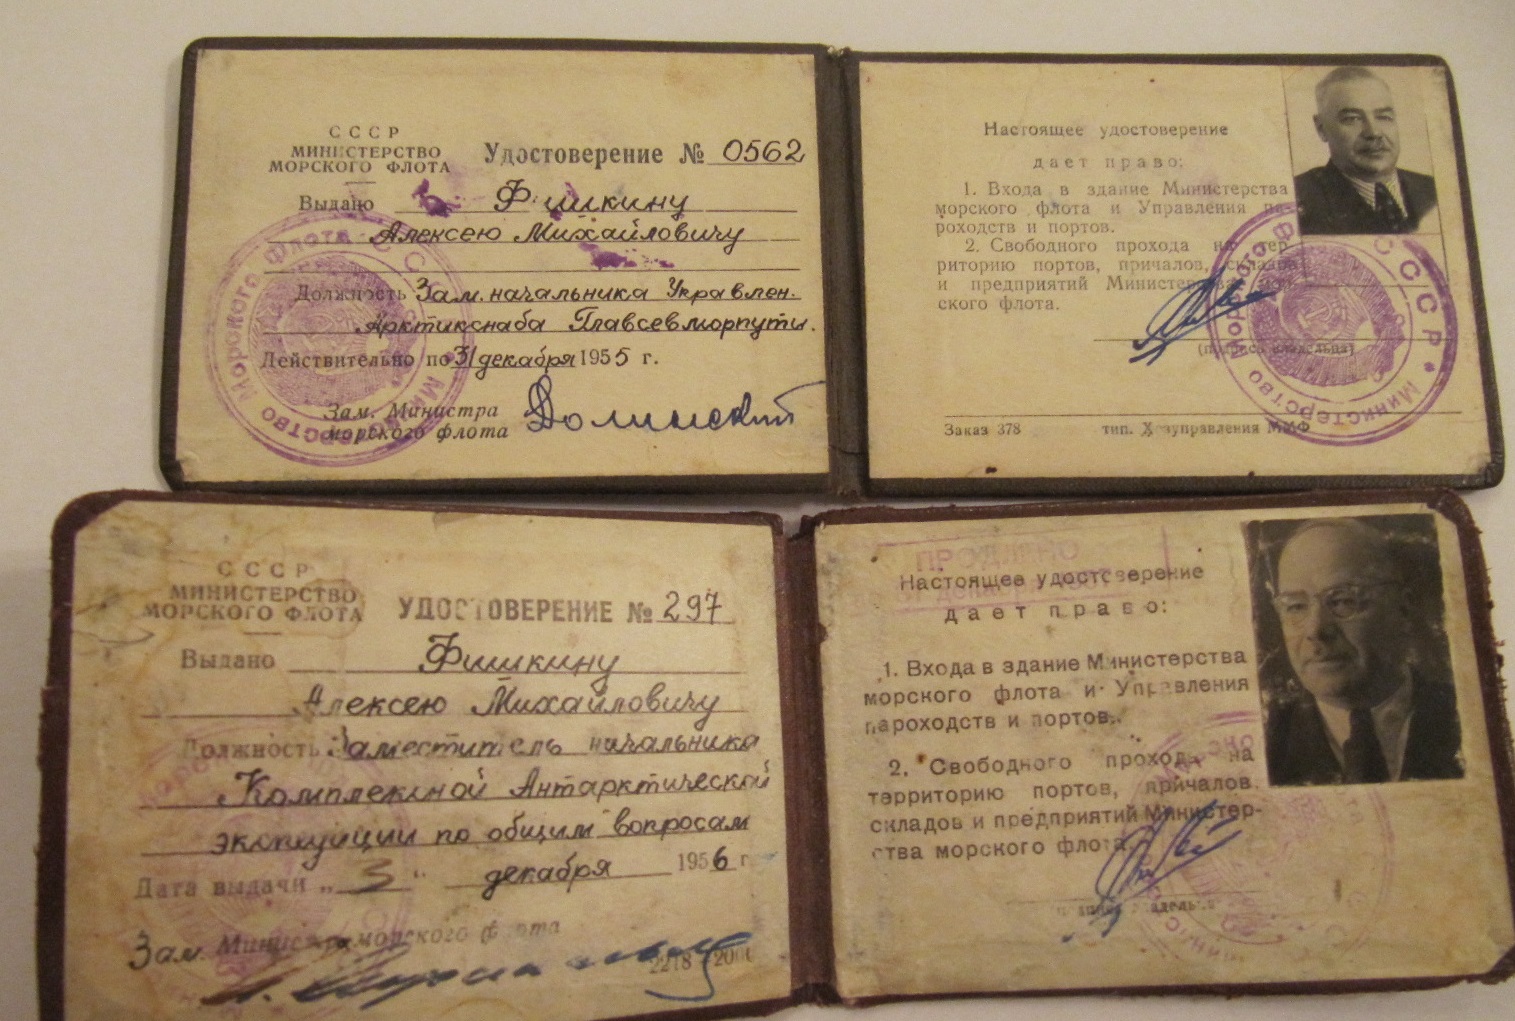 СССР
МИНИСТЕРСТВО
МОРСКОГО ФЛОТА
Удостоверение № 0562
Выдано Фишкину
Алексею Михайловичу
Должность Зам. начальника Управлен.
Арктикснаба Главсевморпути.
Действительно по 31 декабря 1955 г.
Зам. Министра
морского флота
Настоящее удостоверение
дает право:
1. Входа в здание Министерства
морского флота и Управления па-
роходств и портов.
2. Свободного прохода на тер-
риторию портов, причалов, складов
и предприятий Министерства мор-
ского флота.
(подпись владельца)
Заказ 378 тип. Хозуправления ММФ
Министерство Морского Флота СССР
СССР
МИНИСТЕРСТВО
МОРСКОГО ФЛОТА
УДОСТОВЕРЕНИЕ № 297
Выдано Фишкину
Алексею Михайловичу
Должность Заместитель начальника
Комплексной Антарктической
экспедиции по общим вопросам
Дата выдачи „3“ декабря 1956 г.
Зам. Министра морского флота
ПРОДЛЕНО
Настоящее удостоверение
дает право:
1. Входа в здание Министерства
морского флота и Управления
пароходств и портов.
2. Свободного прохода на
территорию портов, причалов,
складов и предприятий Министер-
ства морского флота.